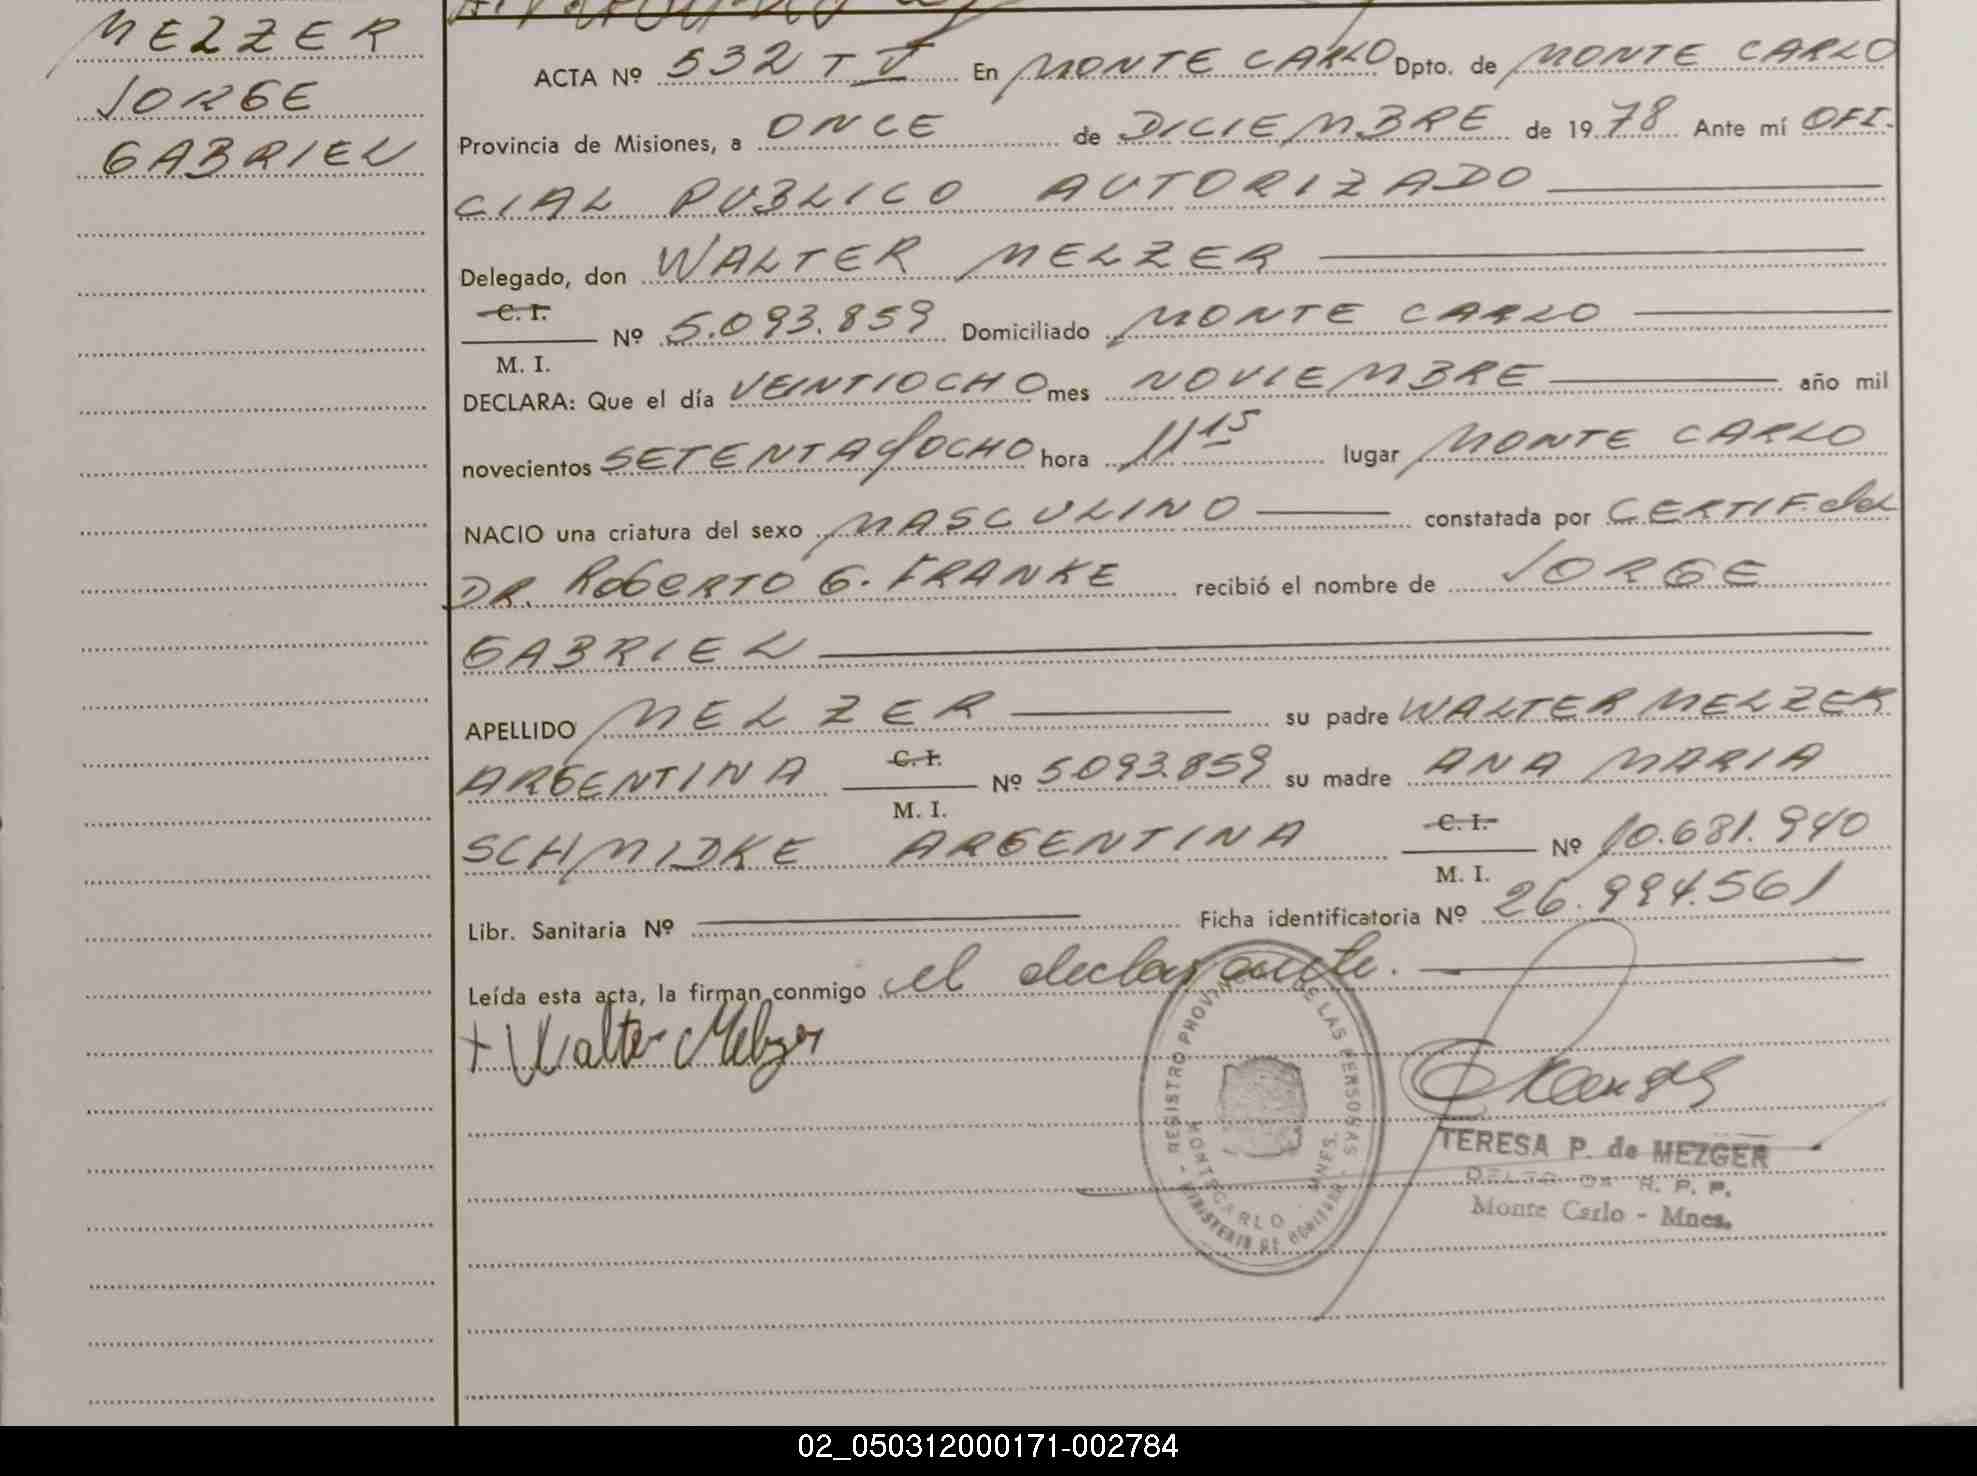 MELZER
JORGE
GABRIEL
ACTA Nº 532 T V En MONTE CARLO Dpto. de MONTE CARLO
Provincia de Misiones, a ONCE de DICIEMBRE de 1978 Ante mí OFI-
CIAL PUBLICO AUTORIZADO
Delegado, don WALTER MELZER
C. I.
M. I.
Nº 5.093.859 Domiciliado MONTE CARLO
DECLARA: Que el día VEINTIOCHO mes NOVIEMBRE año mil
novecientos SETENTA y OCHO hora 11 15 lugar MONTE CARLO
NACIO una criatura del sexo MASCULINO constatada por CERTIF. del
DR. ROBERTO G. FRANKE recibió el nombre de JORGE
GABRIEL
APELLIDO MELZER su padre WALTER MELZER
ARGENTINA C. I. Nº 5.093.859 su madre ANA MARIA
M. I.
SCHMIDKE ARGENTINA C. I. Nº 10.681.940
M. I.
Libr. Sanitaria Nº Ficha identificatoria Nº 26.994.561
Leída esta acta, la firman conmigo el declarante.
+ Walter Melzer
REGISTRO PROVINCIAL DE LAS PERSONAS
MONTECARLO - MNES.
MINISTERIO DE GOBIERNO
TERESA P. de MEZGER
DELEGADA R. P. P.
Monte Carlo - Mnes.
02_050312000171-002784